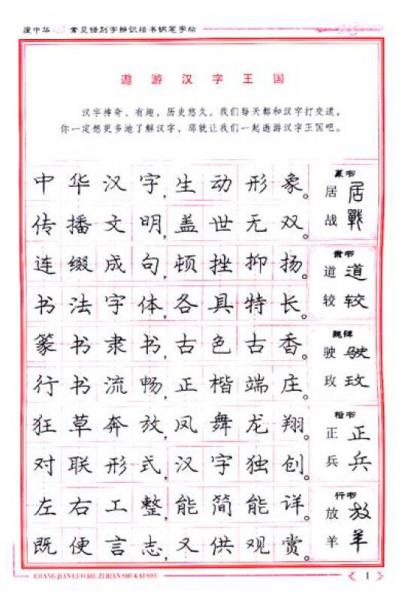 庞中华 常见错别字辨识楷书钢笔字帖
遨游汉字王国
汉字神奇、有趣，历史悠久。我们每天都和汉字打交道，
你一定想更多地了解汉字，那就让我们一起遨游汉字王国吧。
中华汉字，生动形象。
传播文明，盖世无双。
连缀成句，顿挫抑扬。
书法字体，各具特长。
篆书隶书，古色古香。
行书流畅，正楷端庄。
狂草奔放，凤舞龙翔。
对联形式，汉字独创。
左右工整，能简能详。
既便言志，又供观赏。
篆书
居 居
战 戰
隶书
道 道
较 较
魏碑
驶 驶
玫 玫
楷书
正 正
兵 兵
行书
放 放
羊 羊
CHANG JIAN CUO BIE ZI BIAN SHI KAI SHU
1